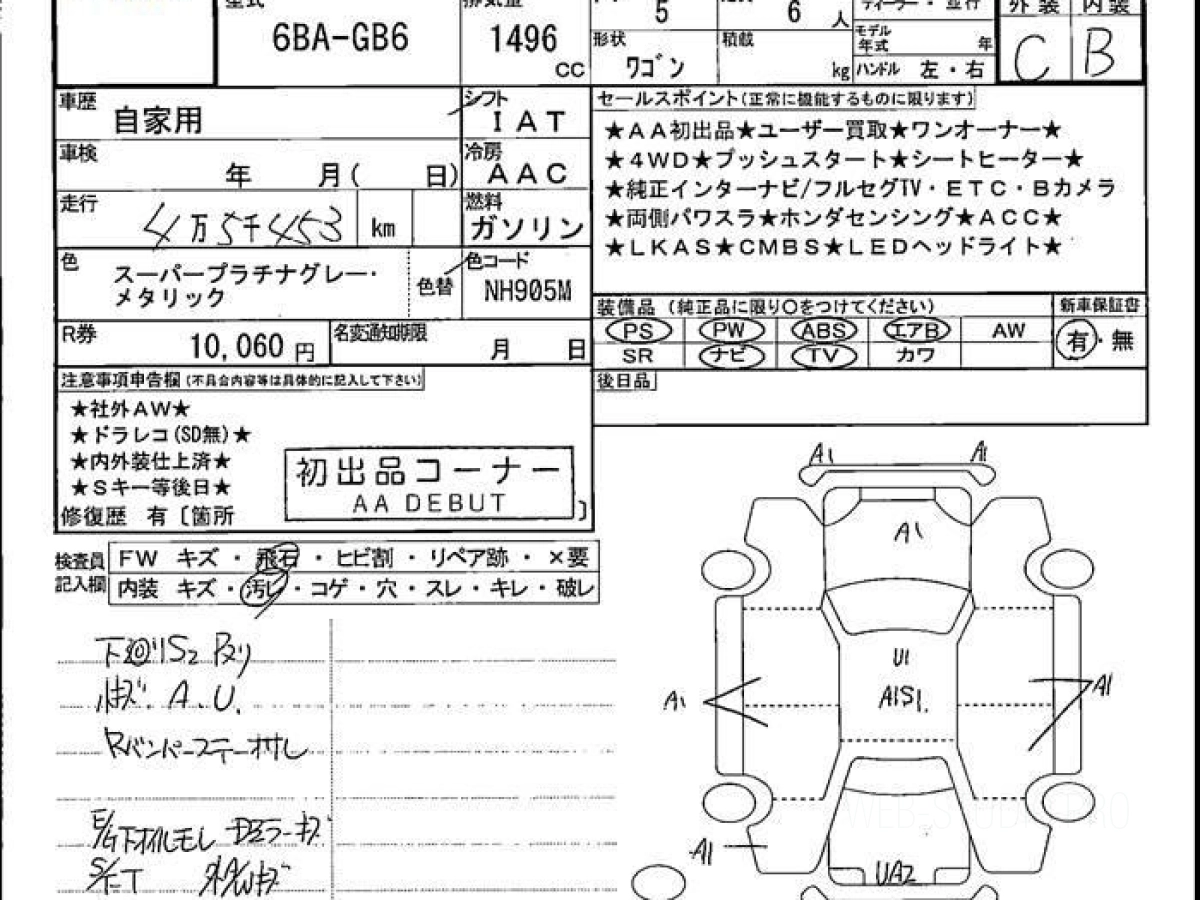 型式
排気量
5
6 人
ディーラー・並行
外装 内装
6BA-GB6
1496
CC
形状
積載
モデル
年式
年
C B
ワゴン
kg
ハンドル 左・右
車歴
自家用
シフト
IAT
セールスポイント(正常に機能するものに限ります)
★AA初出品★ユーザー買取★ワンオーナー★
車検
年 月( 日)
冷房
AAC
★4WD★プッシュスタート★シートヒーター★
走行
4万5千453
km
燃料
ガソリン
★純正インターナビ/フルセグTV・ETC・Bカメラ
★両側パワスラ★ホンダセンシング★ACC★
★LKAS★CMBS★LEDヘッドライト★
色
スーパープラチナグレー・
メタリック
色替
色コード
NH905M
装備品 (純正品に限り○をつけてください)
新車保証書
PS PW ABS エアB AW
有・無
SR ナビ TV カワ
R券
10,060 円
名変通知期限
月 日
後日品
注意事項申告欄(不具合内容等は具体的に記入して下さい)
★社外AW★
★ドラレコ(SD無)★
★内外装仕上済★
★Sキー等後日★
初出品コーナー
AA DEBUT
修復歴 有〔箇所
〕
検査員
記入欄
FW キズ・飛石・ヒビ割・リペア跡・×要
内装 キズ・汚レ・コゲ・穴・スレ・キレ・破レ
A1 A1
A1
U1
A1S1.
A1
A1
A1
UA2
S2
A.U.
Rバンパーステー
E/G下オイルモレ